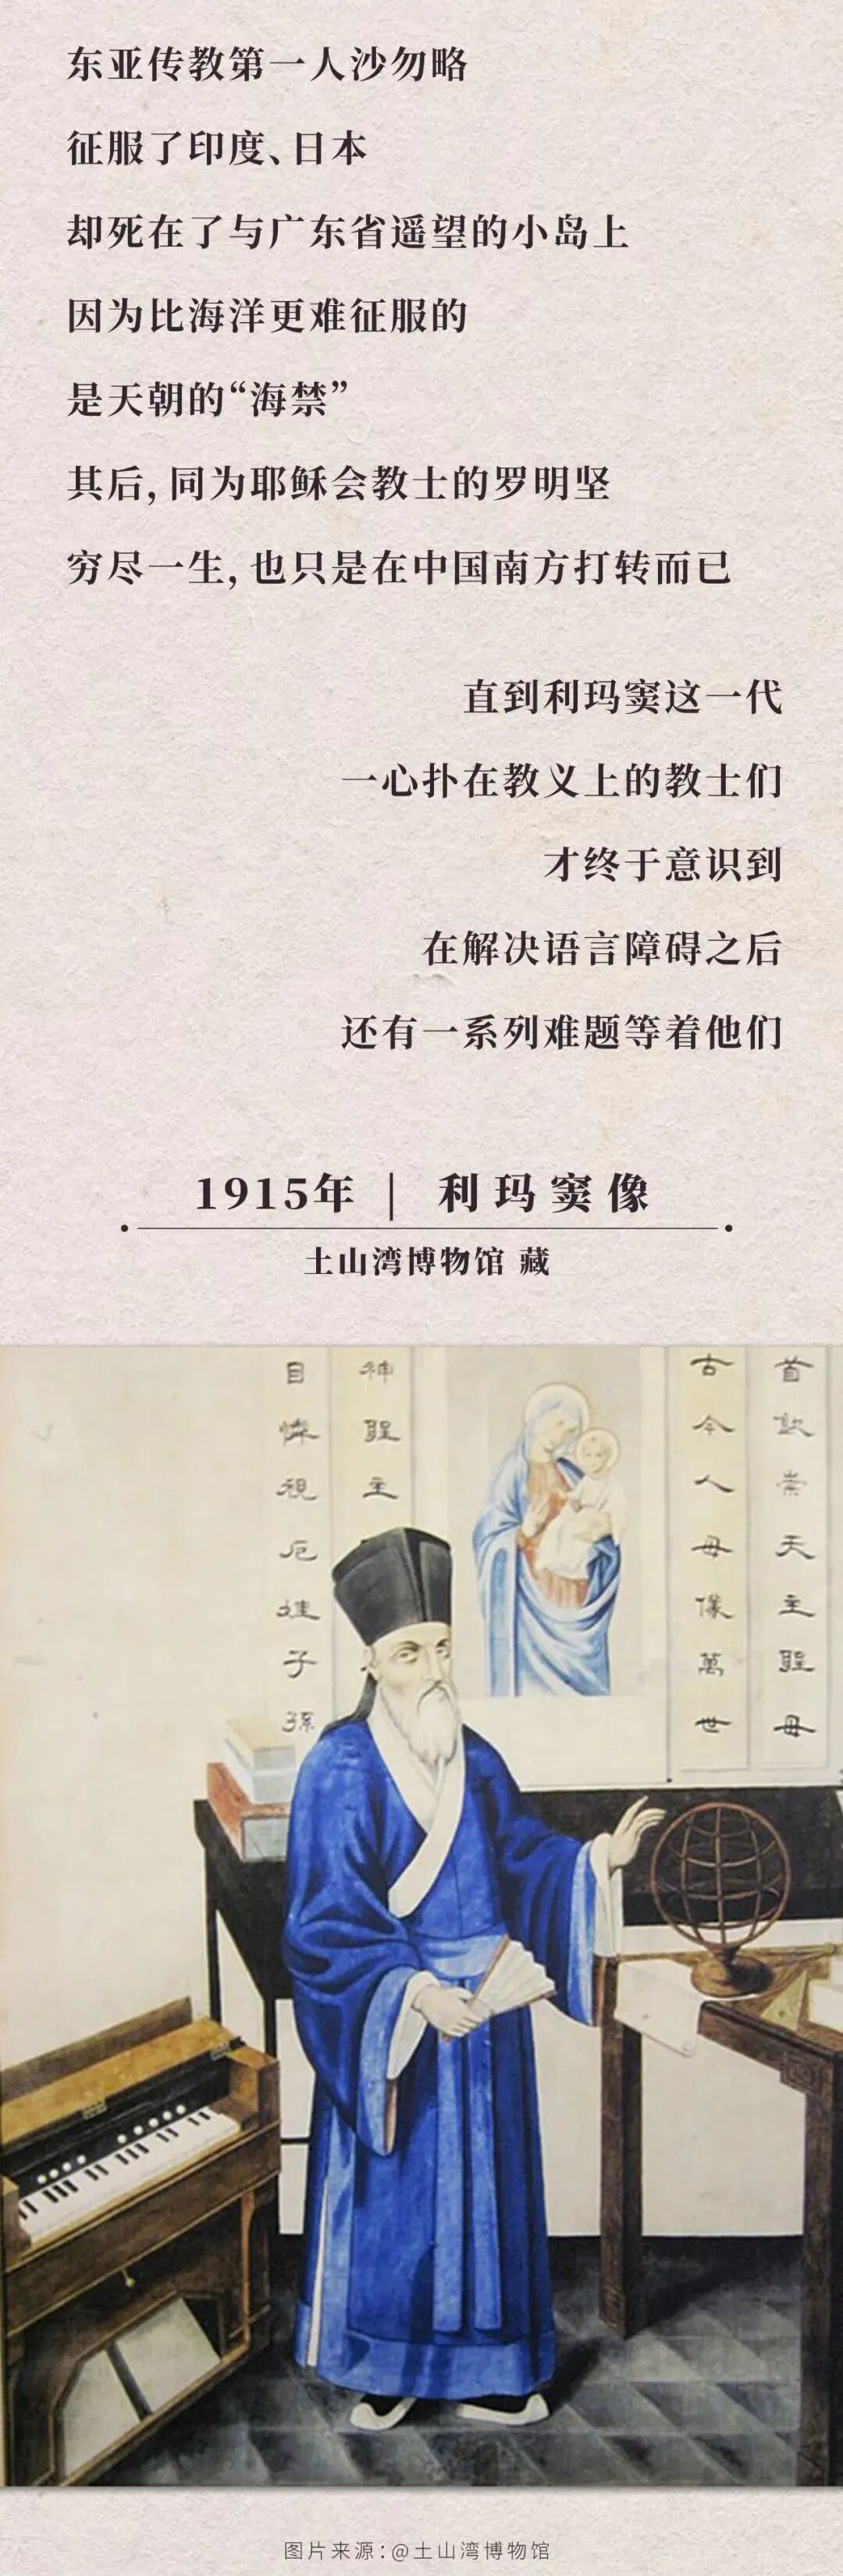 东亚传教第一人沙勿略
征服了印度、日本
却死在了与广东省遥望的小岛上
因为比海洋更难征服的
是天朝的“海禁”
其后，同为耶稣会教士的罗明坚
穷尽一生，也只是在中国南方打转而已
直到利玛窦这一代
一心扑在教义上的教士们
才终于意识到
在解决语言障碍之后
还有一系列难题等着他们
1915年 | 利玛窦像
土山湾博物馆 藏
首 崇天主聖母
古今人母像萬世
神聖主
目憐視厄 子孫
图片来源：@土山湾博物馆